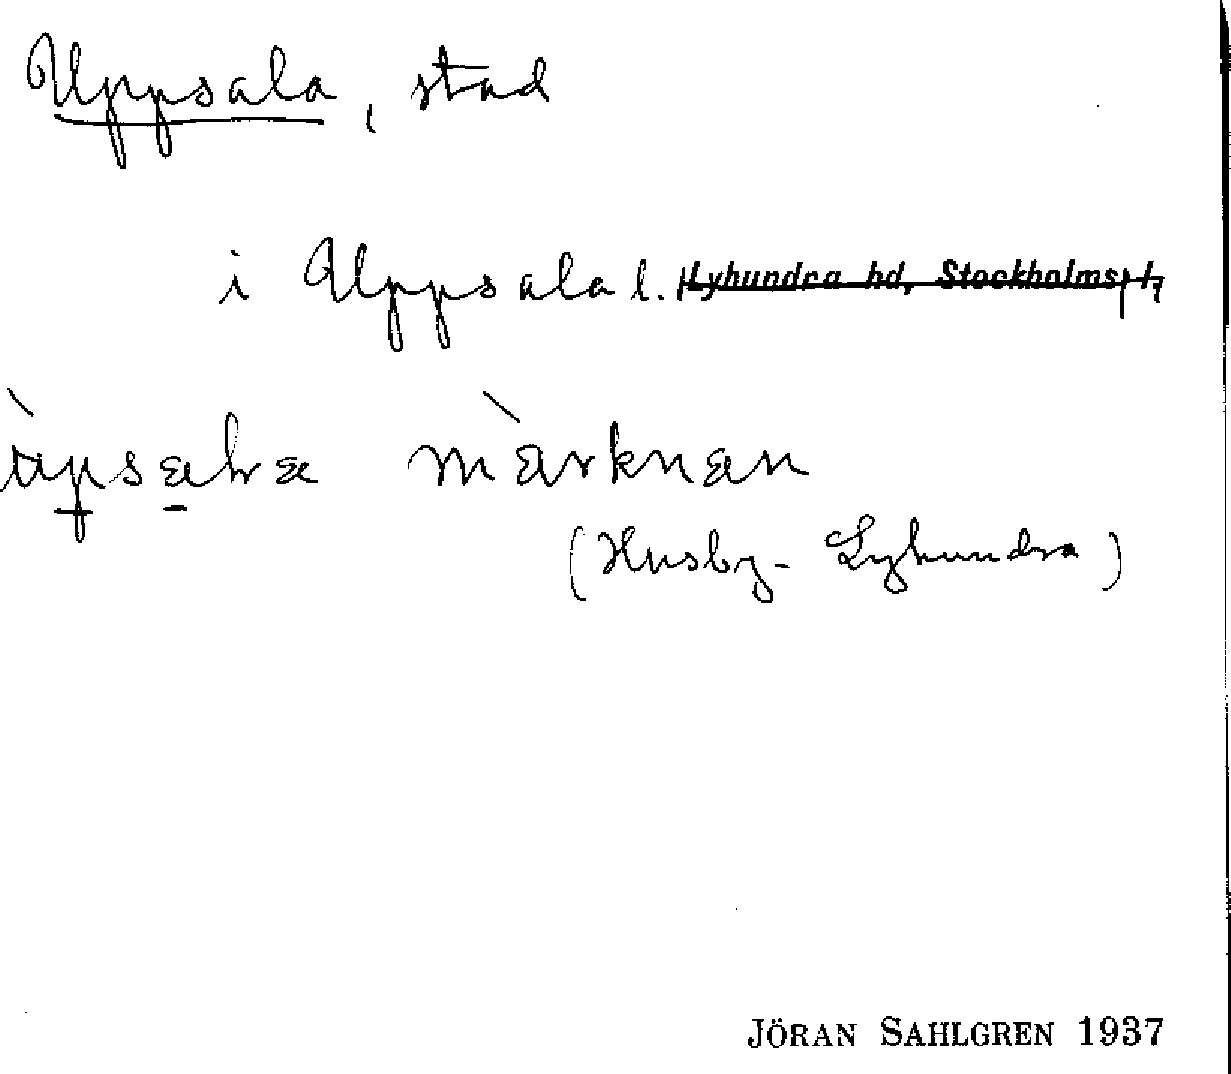 Uppsala, stad
i Uppsala l. Lyhundra hd, Stockholms l.
màrknan
(Husby-Lyhundra)
JÖRAN SAHLGREN 1937